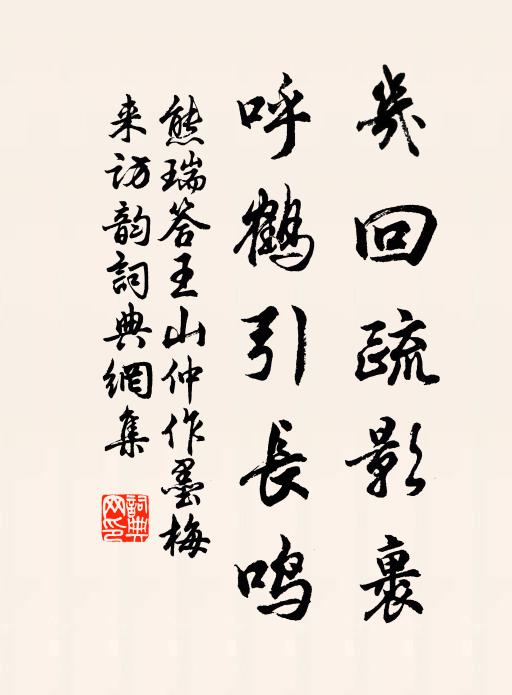 幾回疏影裏
呼鶴引長鳴
熊瑞答王山仲作墨梅
来访韵詞典網集
詞典网印